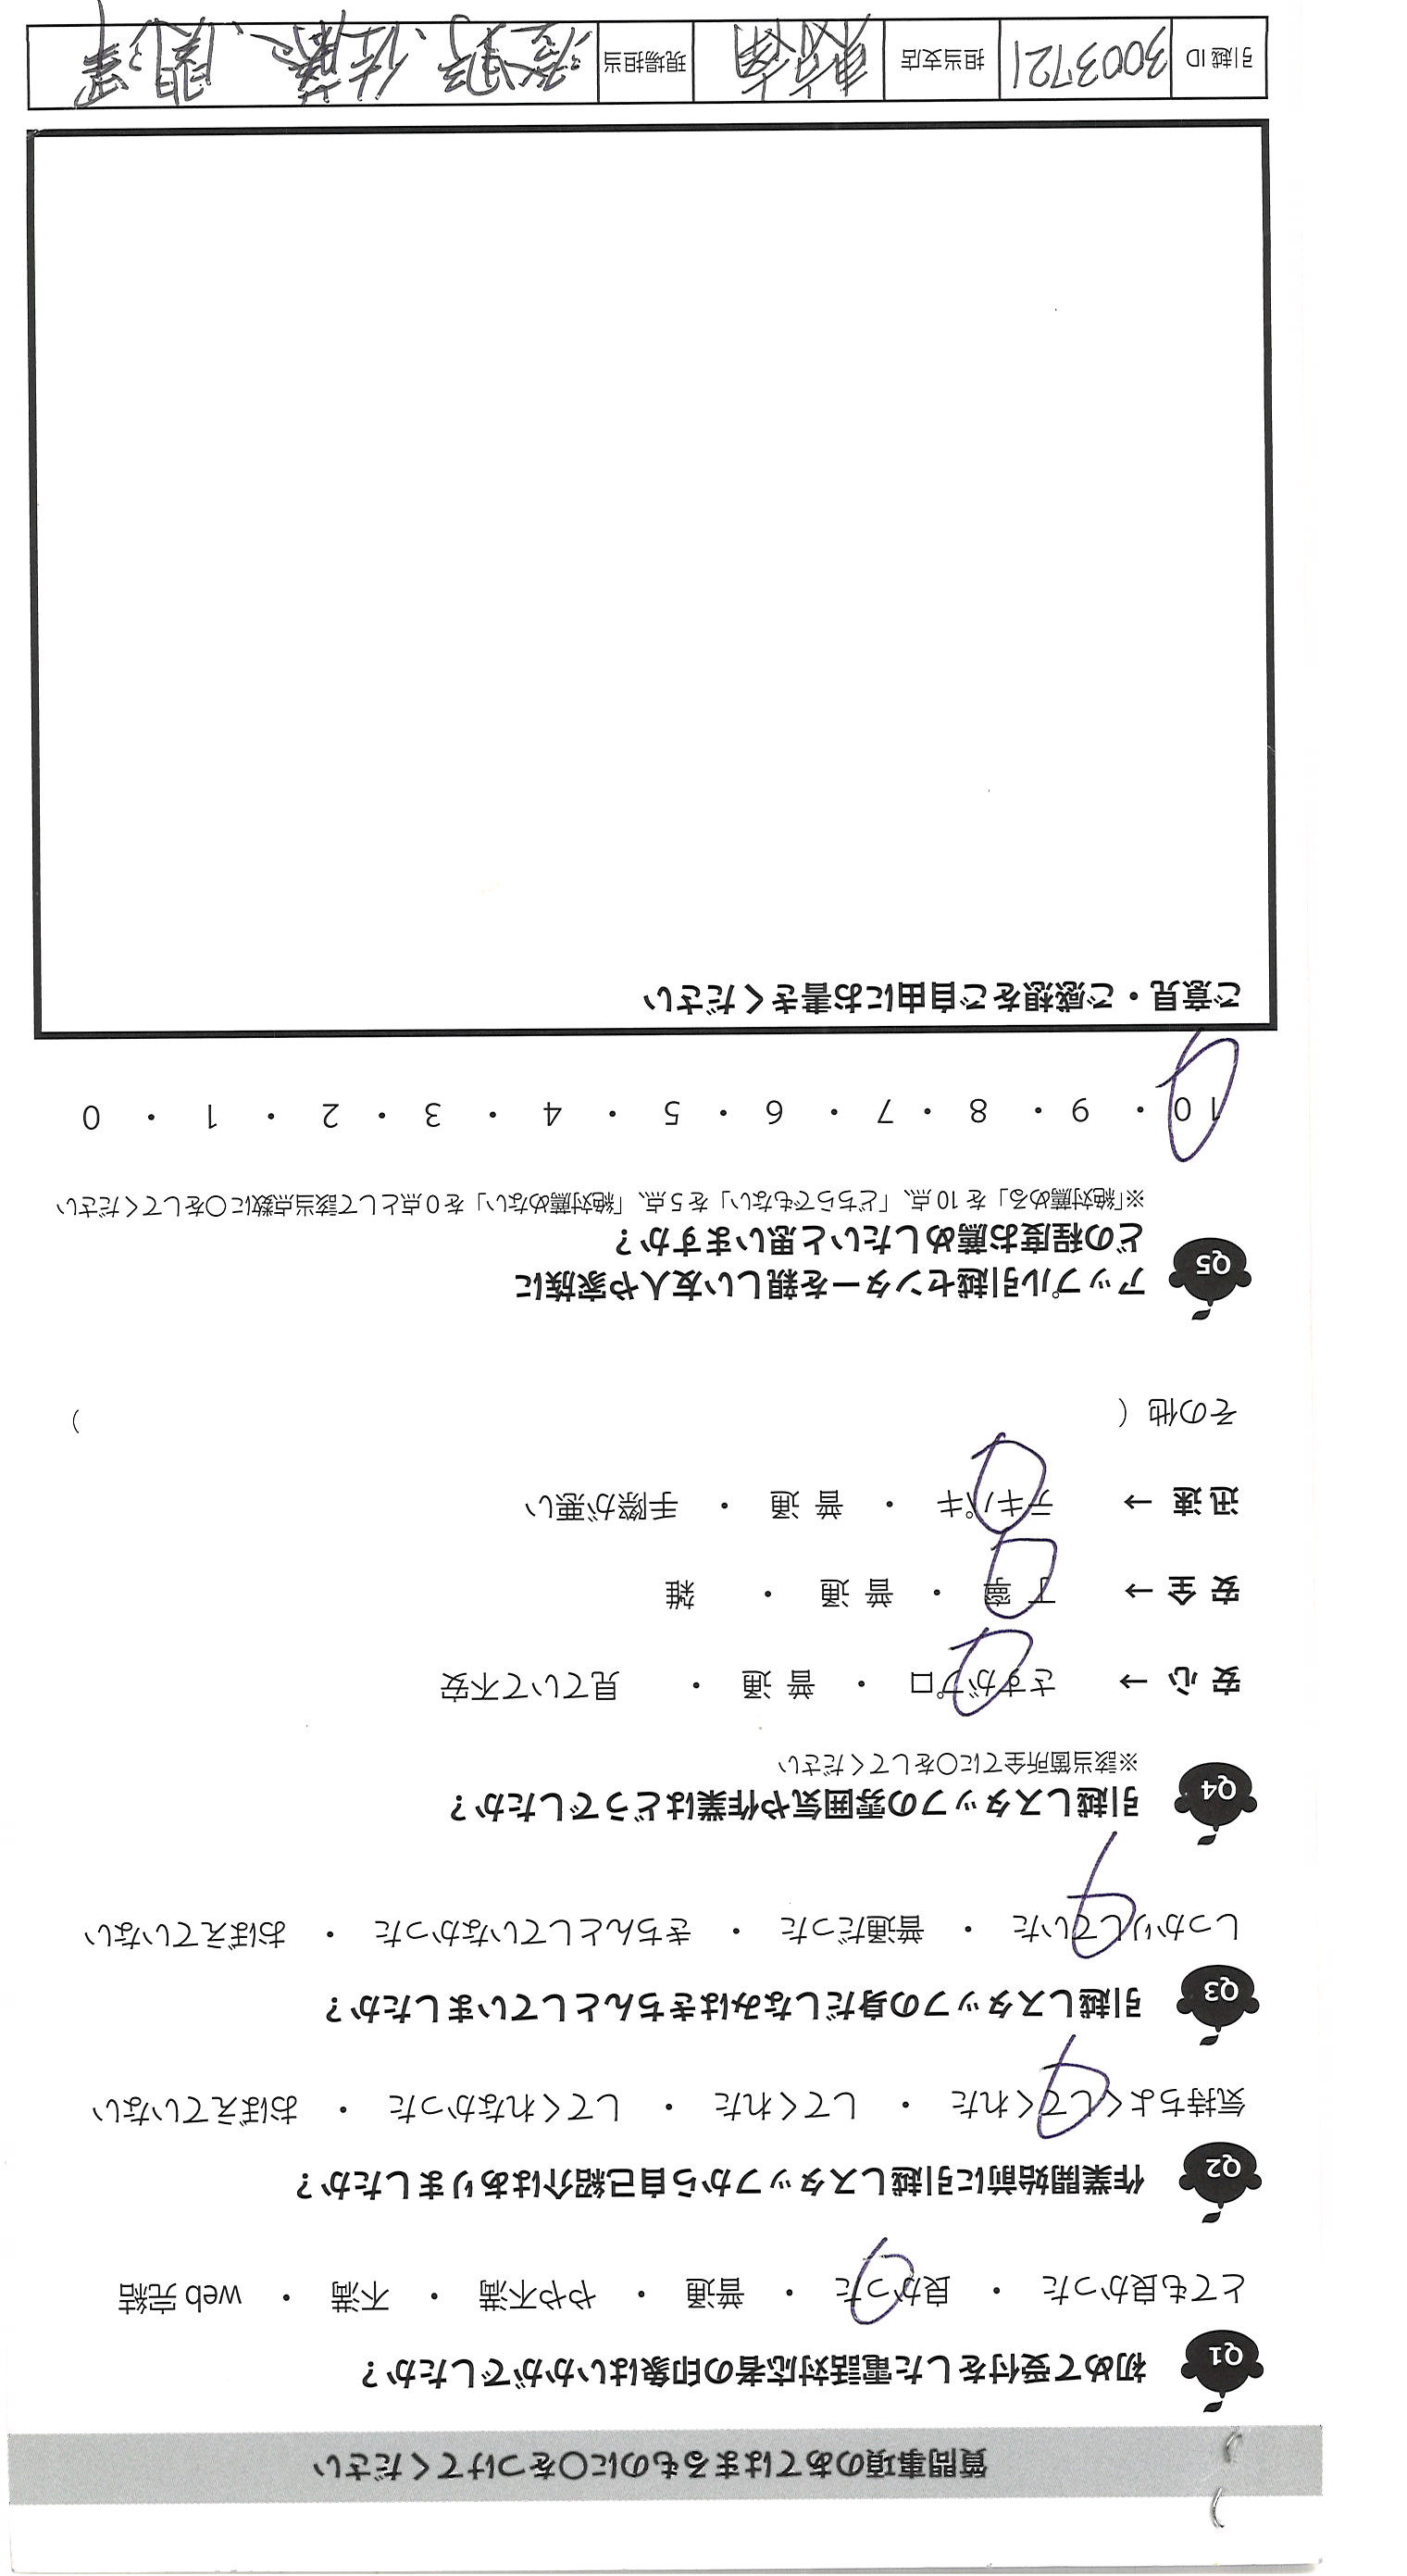 質問事項のあてはまるものに〇をつけてください
Q1 初めて受付をした電話対応者の印象はいかがでしたか？
とても良かった ・ 良かった ・ 普通 ・ やや不満 ・ 不満 ・ web 完結
Q2 作業開始前に引越しスタッフから自己紹介はありましたか？
気持ちよくしてくれた ・ してくれた ・ してくれなかった ・ おぼえていない
Q3 引越しスタッフの身だしなみはきちんとしていましたか？
しっかりしていた ・ 普通だった ・ きちんとしていなかった ・ おぼえていない
Q4 引越しスタッフの雰囲気や作業はどうでしたか？
※該当箇所全てに〇をしてください
安 心 → さすがプロ ・ 普 通 ・ 見ていて不安
安 全 → 丁 寧 ・ 普 通 ・ 雑
迅 速 → テキパキ ・ 普 通 ・ 手際が悪い
その他（ ）
Q5 アップル引越センターを親しい友人や家族に
どの程度お薦めしたいと思いますか？
※「絶対薦める」を 10 点、「どちらでもない」を 5 点、「絶対薦めない」を 0 点として該当点数に〇をしてください
10 ・ 9 ・ 8 ・ 7 ・ 6 ・ 5 ・ 4 ・ 3 ・ 2 ・ 1 ・ 0
ご意見・ご感想をご自由にお書きください
引越 ID 3003721 担当支店 現場担当 佐藤、関澤